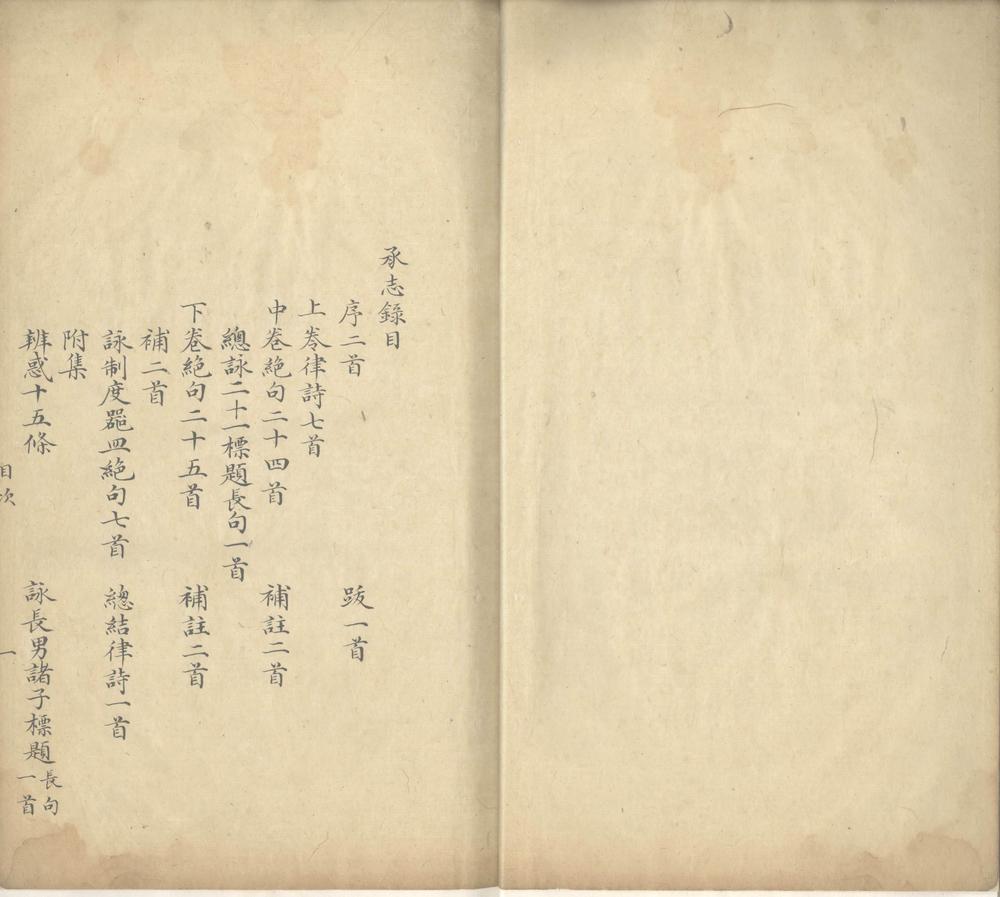 承志錄目
序二首　跋一首
上卷律詩七首
中卷絕句二十四首　補註二首
總詠二十一標題長句一首
下卷絕句二十五首　補註二首
補二首
詠制度噐皿絕句七首　總結律詩一首
附集
辨惑十五條　詠長男諸子標題長句一首
目次　一